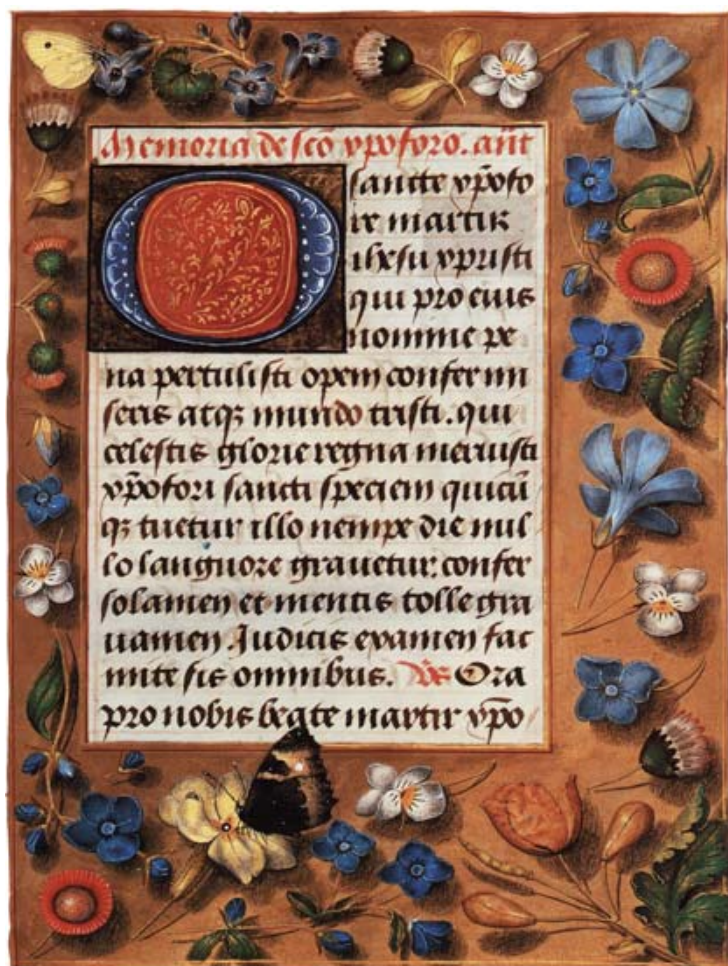 Memoria de scō xpoforo. ant̄
O sancte xp̄ofo
re martir
ihesu xpristi
qui pro eius
nomine pe
na pertulisti opem confer mi
seris atqꝫ mundo tristi. qui
celestis glorie regna meruisti
xp̄ofori sancti speciem quicū
qꝫ tuetur illo nempe die nul
lo languore grauetur: confer
solamen et mentis tolle gra
uamen. Judicis examen fac
mite sis omnibus. V̄s Ora
pro nobis beate martir xp̄o